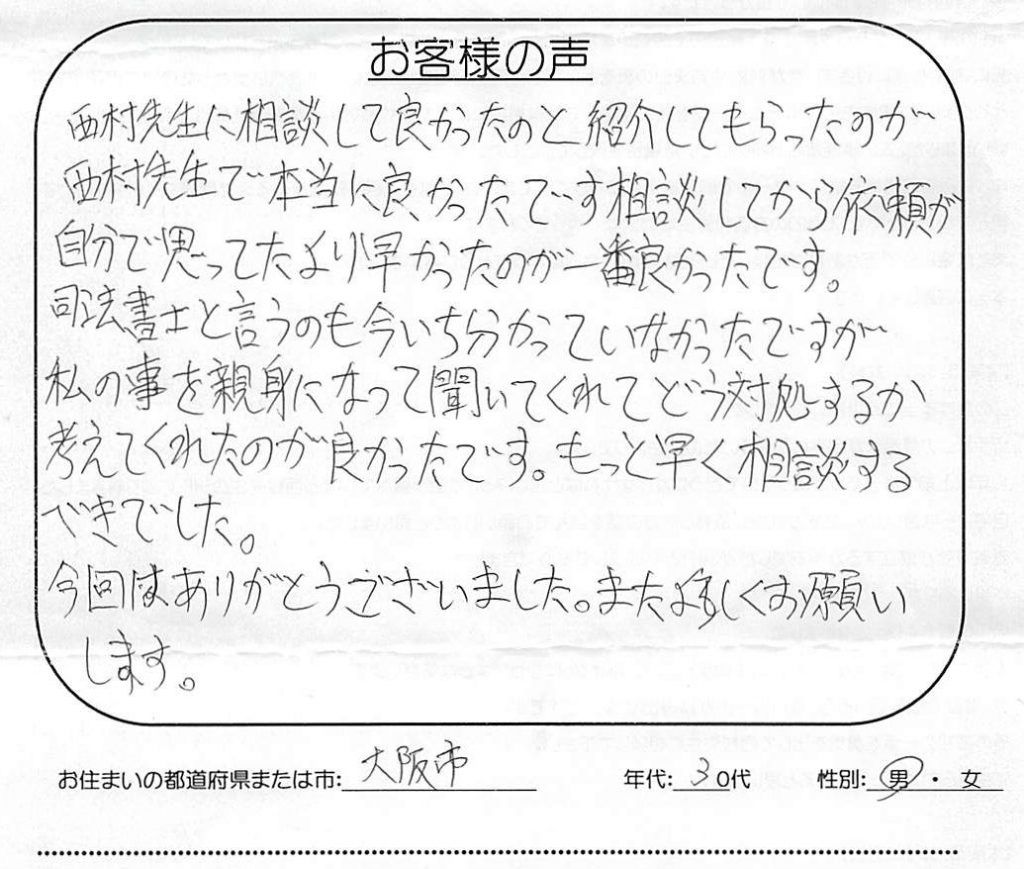 お客様の声
西村先生に相談して良かったのと紹介してもらったのが
西村先生で本当に良かったです相談してから依頼が
自分で思ってたより早かったのが一番良かったです。
司法書士と言うのも今いち分かっていなかったですが
私の事を親身になって聞いてくれてどう対処するか
考えてくれたのが良かったです。もっと早く相談する
べきでした。
今回はありがとうございました。また宜しくお願い
します。
お住まいの都道府県または市: 大阪市 年代: 30代 性別: 男・女